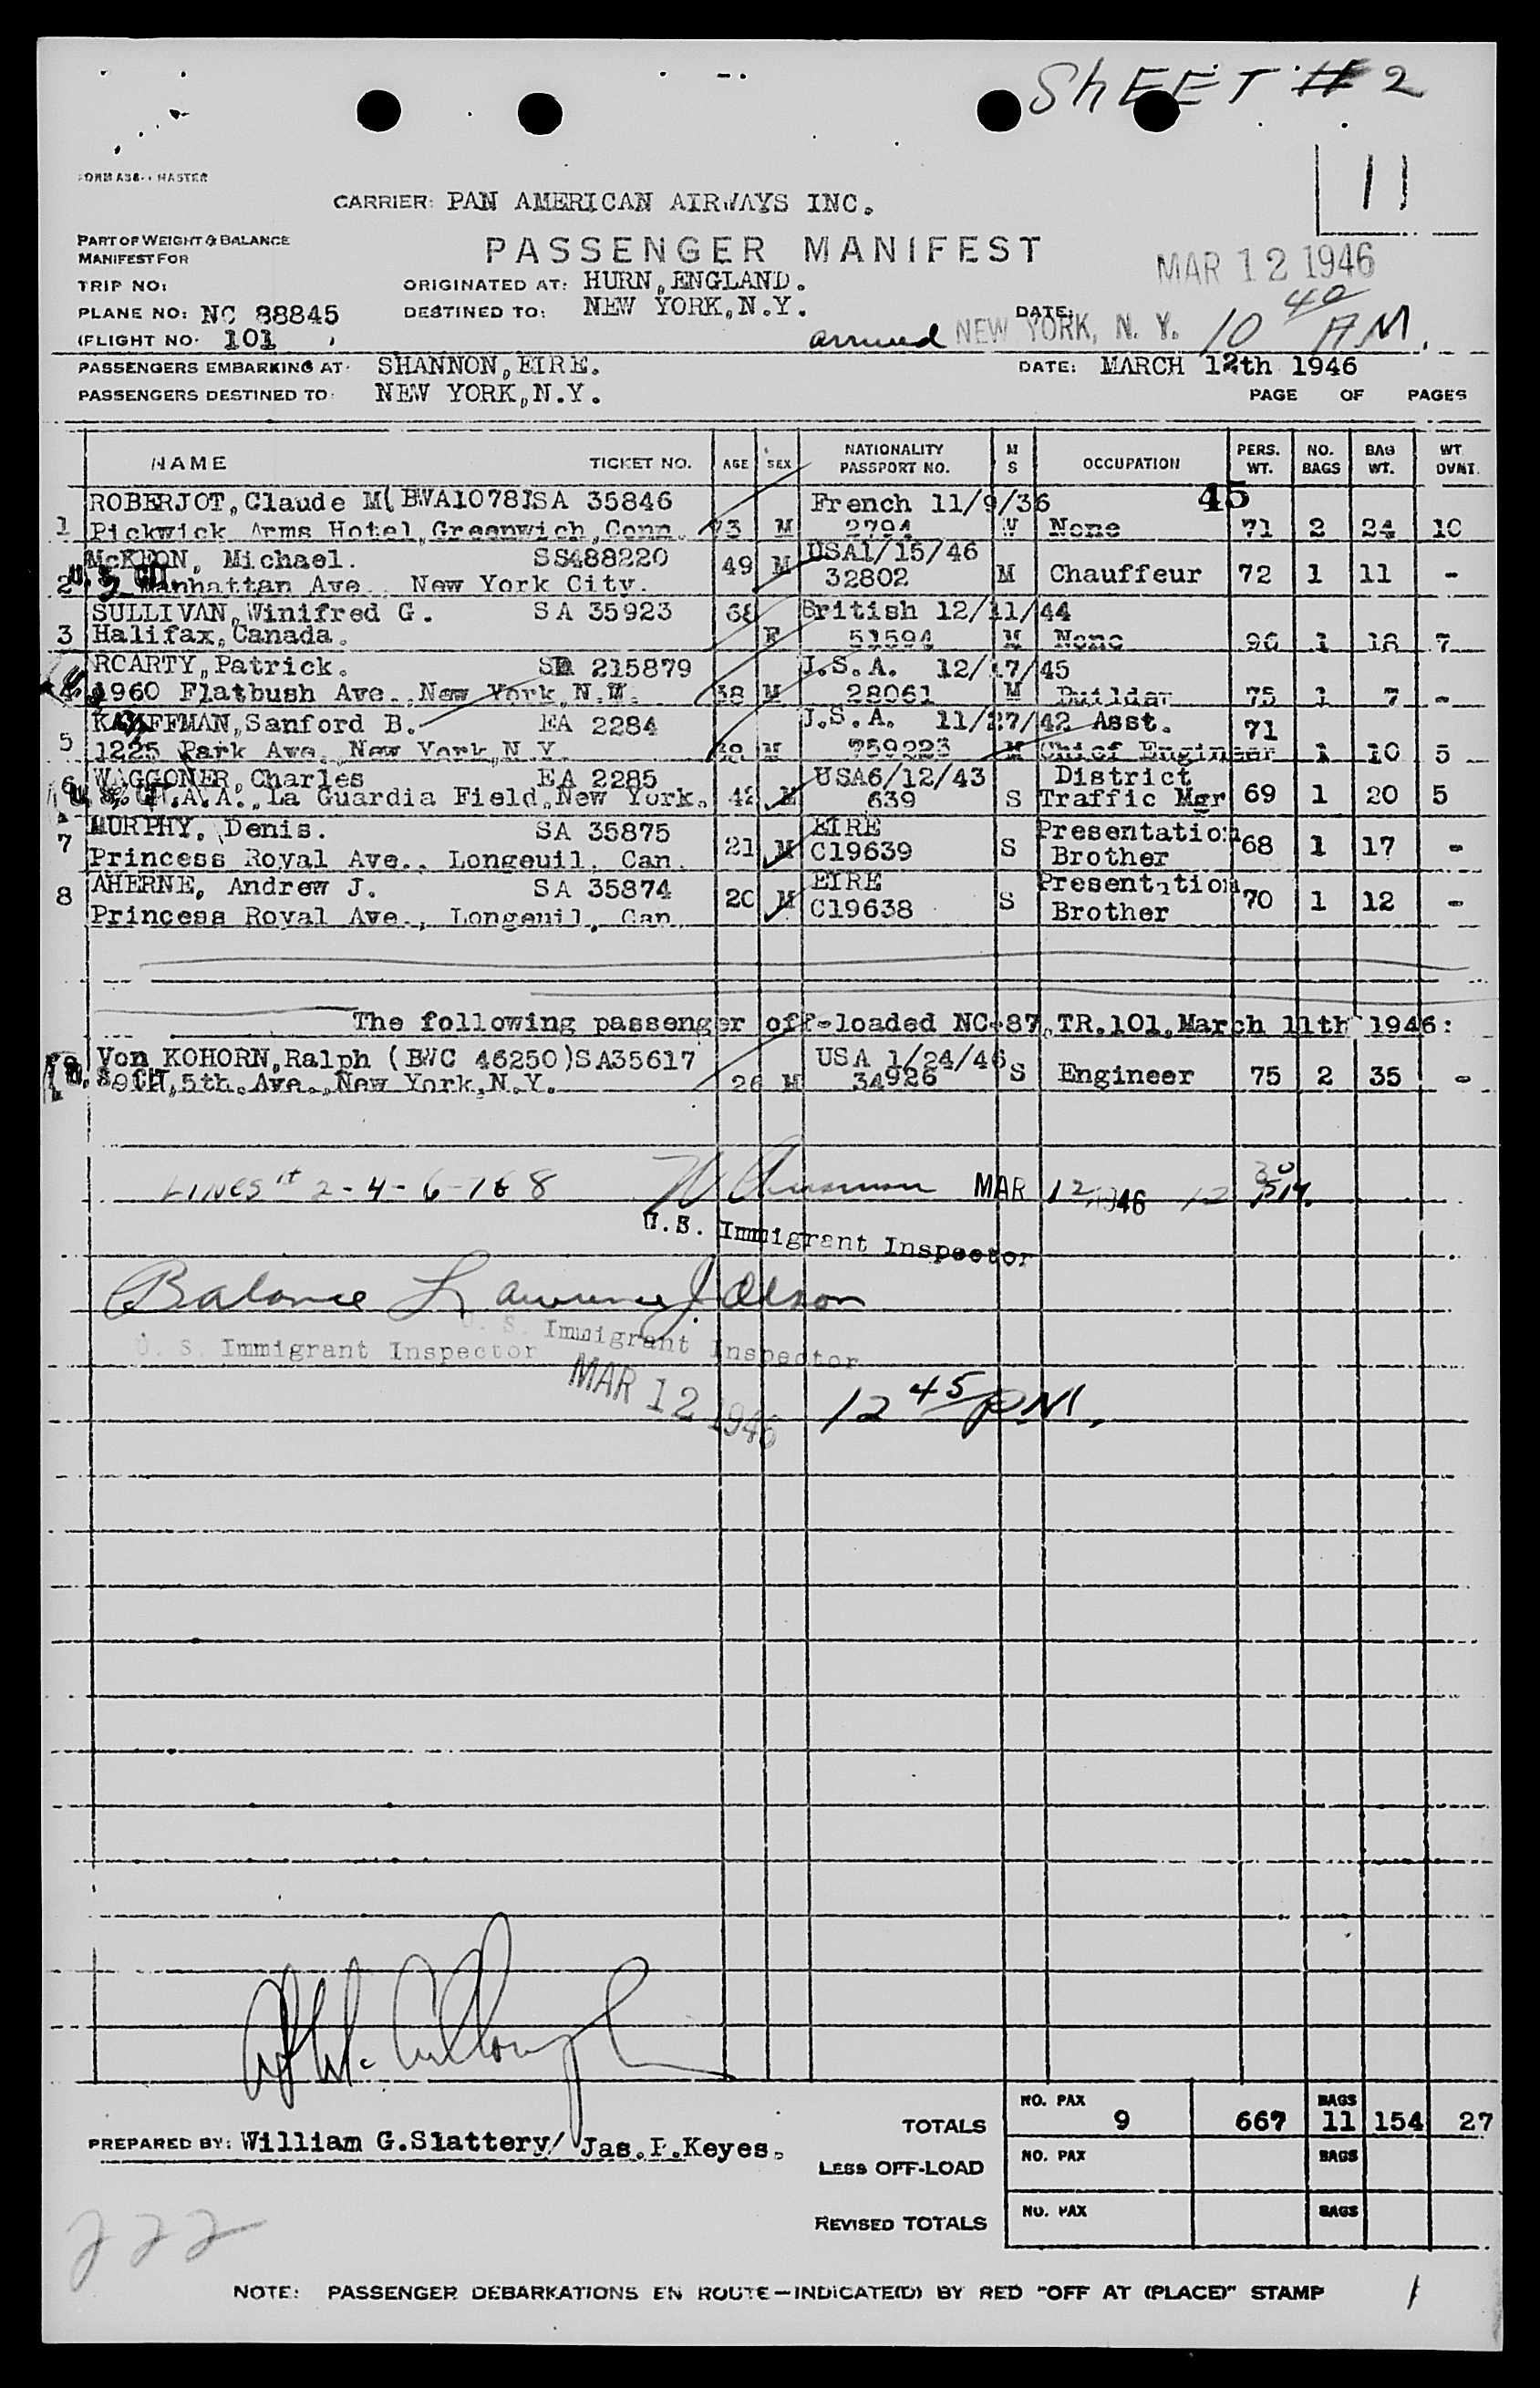 ShEET # 2
11
CARRIER: PAN AMERICAN AIRWAYS INC.
PART OF WEIGHT & BALANCE
MANIFEST FOR
PASSENGER MANIFEST
MAR 12 1946
TRIP NO:
ORIGINATED AT: HURN, ENGLAND.
PLANE NO: NC 88845
DESTINED TO: NEW YORK, N.Y.
DATE:
FLIGHT NO. 101
arrived NEW YORK, N. Y. 10 40 AM.
PASSENGERS EMBARKING AT: SHANNON, EIRE. DATE: MARCH 12th 1946
PASSENGERS DESTINED TO: NEW YORK, N.Y. PAGE OF PAGES
NAME TICKET NO. AGE SEX NATIONALITY PASSPORT NO. M S OCCUPATION PERS. WT. NO. BAGS BAG WT. WT OVNT.
ROBERJOT, Claude M( BWA10781SA 35846 French 11/9/36 45
1 Pickwick Arms Hotel, Greenwich, Conn. 73 M 2794 W None 71 2 24 10
McKEON, Michael. SS488220 49 M USA1/15/46
2 Manhattan Ave., New York City. 32802 M Chauffeur 72 1 11 -
SULLIVAN, Winifred G. SA 35923 68 British 12/11/44
3 Halifax, Canada. F 51594 M None 96 1 18 7
RCARTY, Patrick. 215879 U.S.A. 12/17/45
4 1960 Flatbush Ave., New York, N.Y. 38 M 28061 M Builder 75 1 7 -
KAUFFMAN, Sanford B. EA 2284 U.S.A. 11/27/42 Asst. 71
5 1225 Park Ave., New York, N.Y. M 759223 M Chief Engineer 1 10 5
6 WAGGONER, Charles EA 2285 USA6/12/43 District
P.A.A., La Guardia Field, New York. 42 M 639 S Traffic Mgr 69 1 20 5
MURPHY, Denis. SA 35875 EIRE Presentation
7 Princess Royal Ave., Longeuil, Can. 21 M C19639 S Brother 68 1 17 -
AHERNE, Andrew J. SA 35874 EIRE Presentation
8 Princess Royal Ave., Longeuil, Can. 20 M C19638 S Brother 70 1 12 -
The following passenger off-loaded NC-87, TR.101, March 11th 1946:
Von KOHORN, Ralph (BWC 46250)SA35617 USA 1/24/46
5th. Ave., New York, N.Y. 26 M 34926 S Engineer 75 2 35 -
LINES 2-4-6-7&8 MAR 12 1946 12 30 PM.
U.S. Immigrant Inspector
Balance Lawrence J. Olson
U. S. Immigrant Inspector
U. S. Immigrant Inspector
MAR 12 1946 12 45 P.M.
TOTALS NO. PAX 9 667 BAGS 11 154 27
PREPARED BY: William G.Slattery/ Jas.F.Keyes.
LESS OFF-LOAD NO. PAX BAGS
REVISED TOTALS NO. PAX BAGS
222
NOTE: PASSENGER DEBARKATIONS EN ROUTE-INDICATE(D) BY RED "OFF AT (PLACE)" STAMP 1